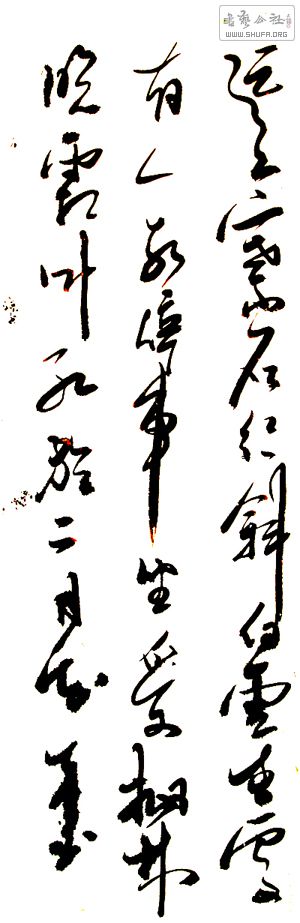 書藝公社
WWW.SHUFA.ORG
遠上寒山石径斜白雲生處
有人家停車坐愛楓林
晚霜叶红於二月花